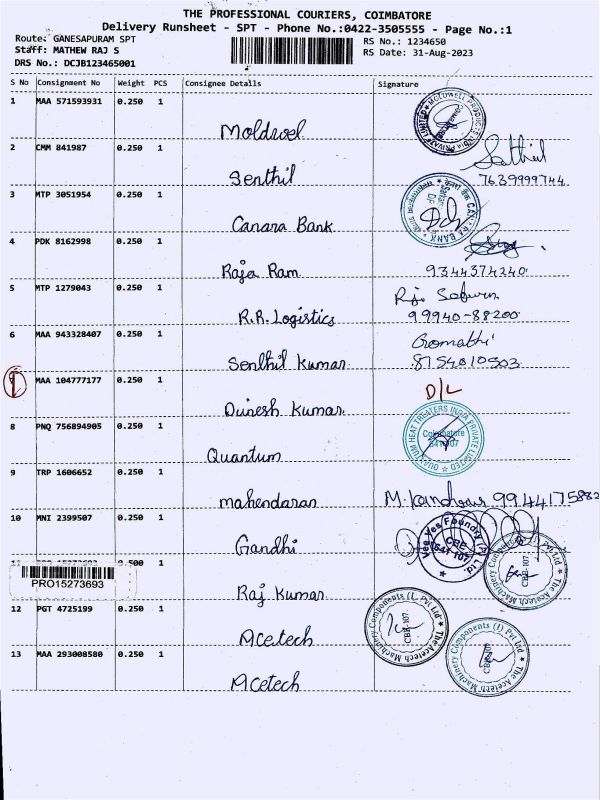 THE PROFESSIONAL COURIERS, COIMBATORE
Delivery Runsheet - SPT - Phone No.:0422-3505555 - Page No.:1
Route: GANESAPURAM SPT
RS No.: 1234650
Staff: MATHEW RAJ S
RS Date: 31-Aug-2023
DRS No.: DCJB123465001
S No Consignment No Weight PCS Consignee Details Signature
1 MAA 571593931 0.250 1
Moldwel
2 CMM 841987 0.250 1
Senthil 7639999744
3 MTP 3051954 0.250 1
Canara Bank
4 PDK 8162998 0.250 1
Raja Ram 9344374240
5 MTP 1279043 0.250 1
R.R. Logistics 99940-88200
6 MAA 943328407 0.250 1 Gomathi
Senthil Kumar 8754010503
7 MAA 104777177 0.250 1 D/L
Dinesh Kumar
QUANTUM HEAT TREATERS INDIA PRIVATE LIMITED
Coimbatore
641 107
8 PNQ 756894905 0.250 1
Quantum
9 TRP 1606652 0.250 1
mahendaran 9944175882
10 MNI 2399507 0.250 1
Gandhi
Vee Yes Foundry (P) Ltd.
CBE
641 107
11 0.500 1
PRO15273693
Raj Kumar
The Acetech Machinery Components (I) Pvt Ltd
CBE-107.
12 PGT 4725199 0.250 1
Acetech
The Acetech Machinery Components (I) Pvt Ltd
CBE-107.
13 MAA 293008580 0.250 1
Acetech
The Acetech Machinery Components (I) Pvt Ltd